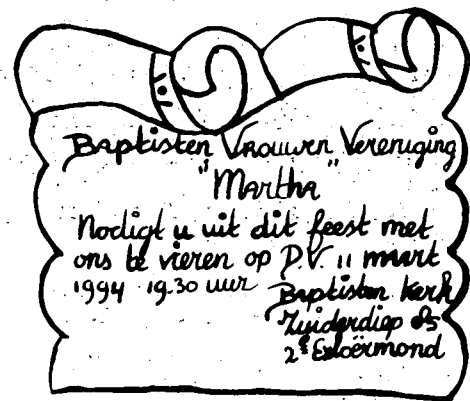 Baptisten Vrouwen Vereniging
"Martha"
Nodigt u uit dit feest met
ons te vieren op D.V. 11 maart
1994 19.30 uur Baptisten Kerk
Zuiderdiep 85
2e Exloërmond